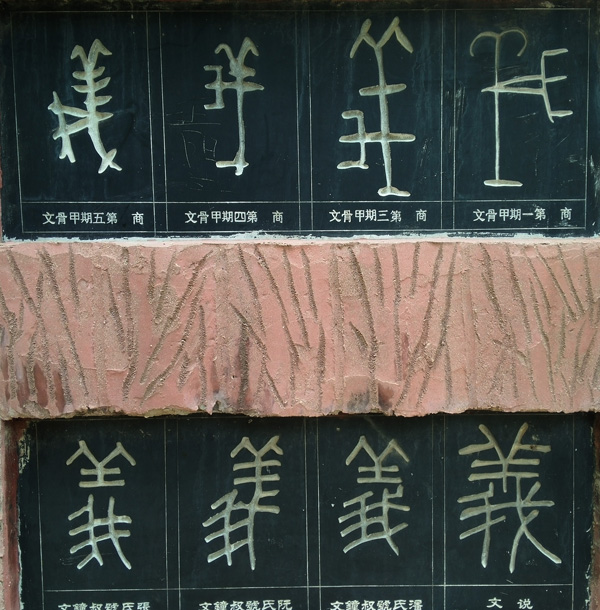 商 第一期甲骨文
商 第三期甲骨文
商 第四期甲骨文
商 第五期甲骨文
説文
潘氏虢叔鐘文
阮氏虢叔鐘文
張氏虢叔鐘文